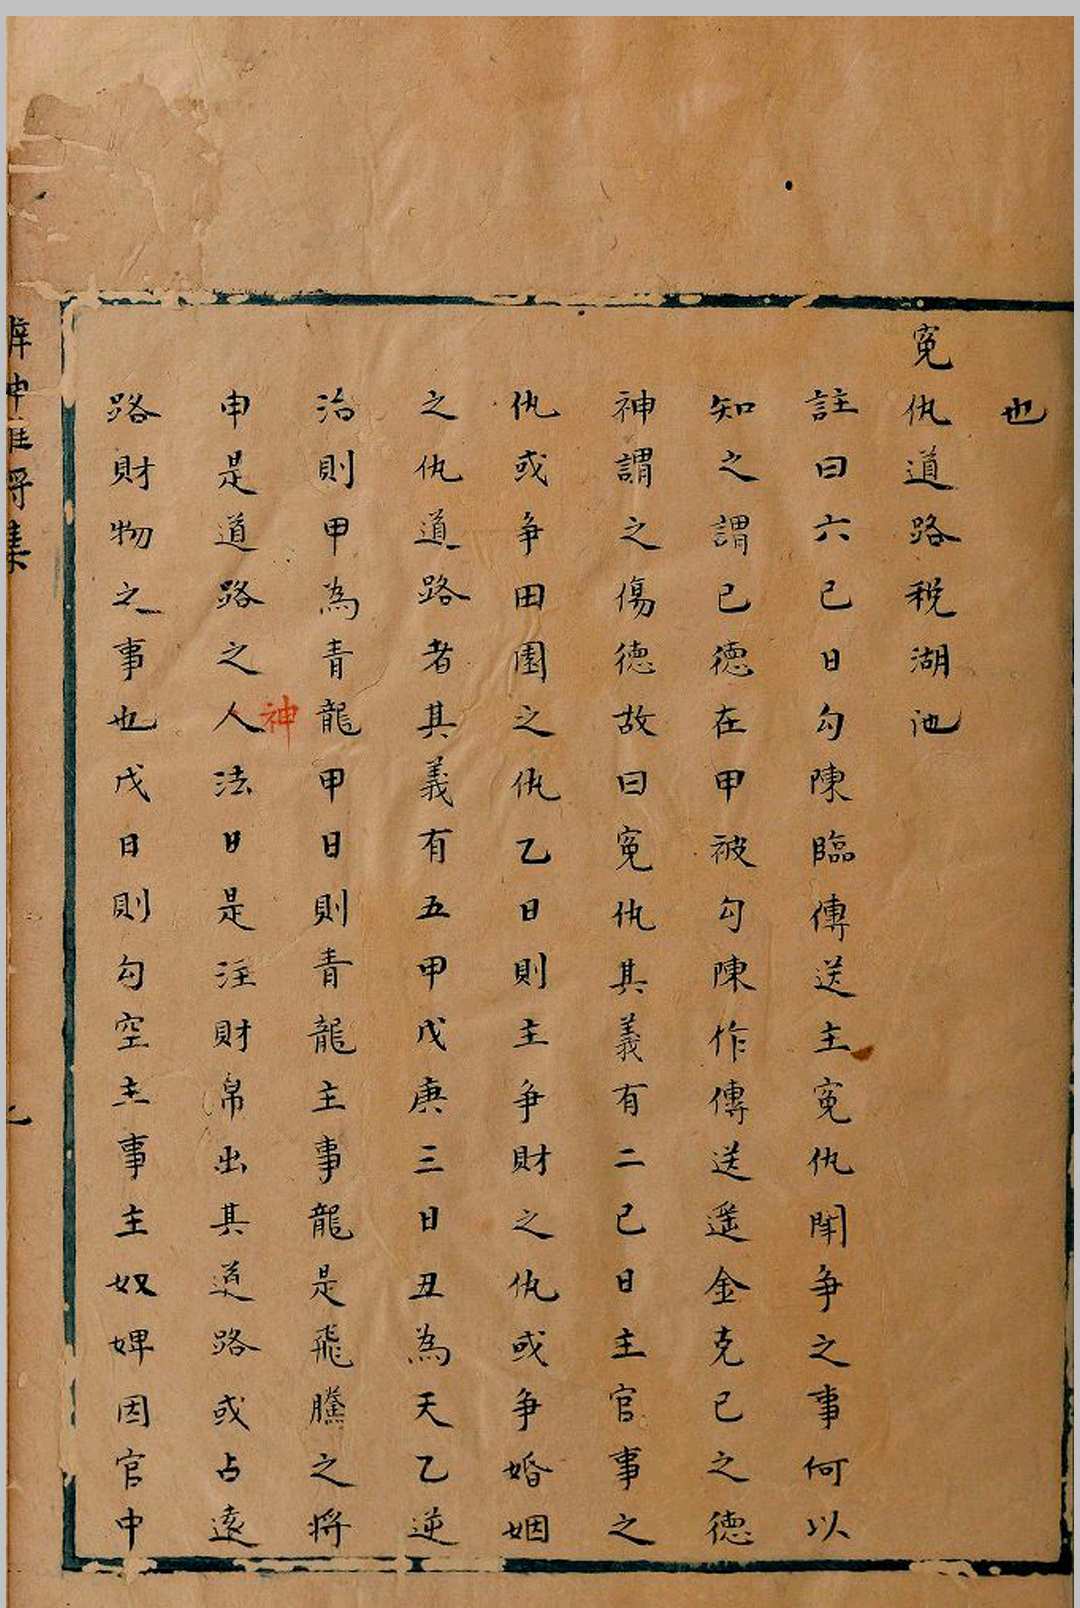 也
寃仇道路稅湖池
註曰六己日勾陳臨傳送主寃仇鬪争之事何以
知之謂己德在甲被勾陳作傳送遥金克己之德
神謂之傷德故曰寃仇其義有二己日主官事之
仇或争田園之仇乙日則主争財之仇或争婚姻
之仇道路者其義有五甲戊庚三日丑為天乙逆
治則甲為青龍甲日則青龍主事龍是飛騰之將
神
申是道路之人法日是注財帛出其道路或占遠
路財物之事也戊日則勾空主事主奴婢因官中
集